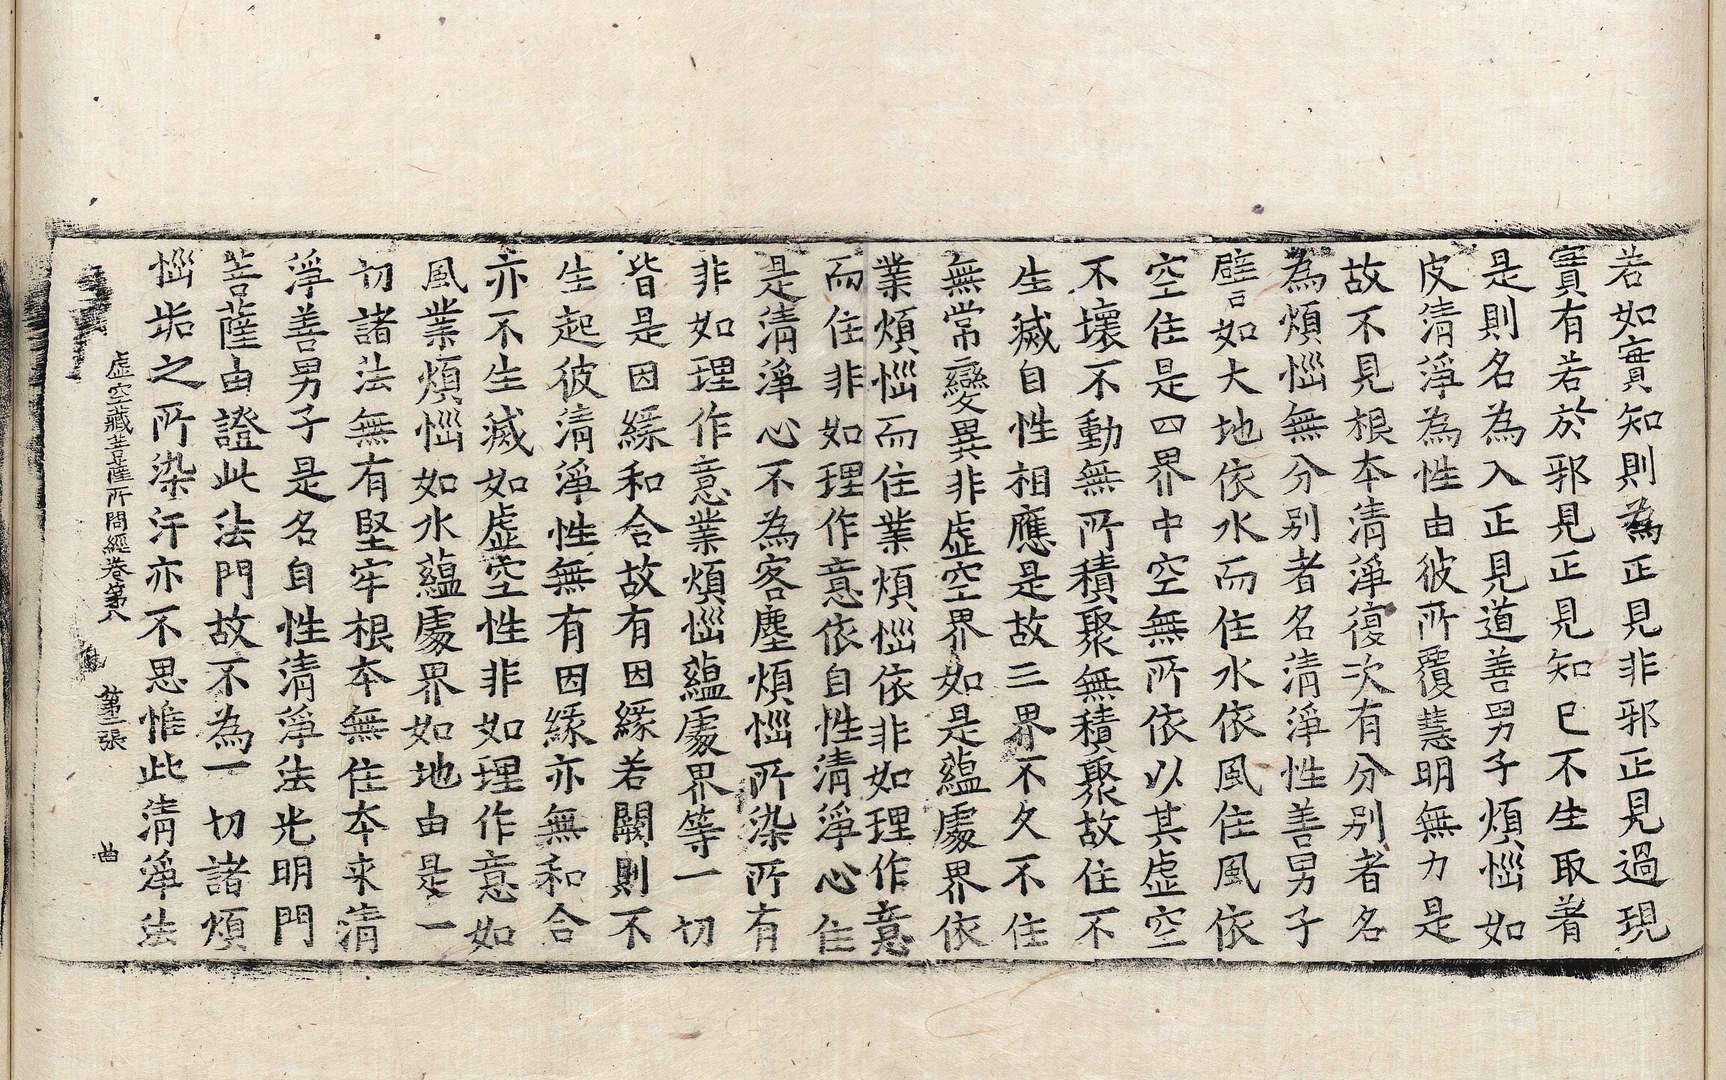 若如實知則為正見非邪正見過現
實有若於邪見正見知已不生取著
是則名為入正見道善男子煩惱如
皮清淨為性由彼所覆慧明無力是
故不見根本清淨復次有分別者名
為煩惱無分別者名清淨性善男子
譬如大地依水而住水依風住風依
空住是四界中空無所依以其虛空
不壞不動無所積聚無積聚故住不
生滅自性相應是故三界不久不住
無常變異非虛空界如是蘊處界依
業煩惱而住業煩惱依非如理作意
而住非如理作意依自性清淨心住
是清淨心不為客塵煩惱所染所有
非如理作意業煩惱蘊處界等一切
皆是因緣和合故有因緣若闕則不
生起彼清淨性無有因緣亦無和合
亦不生滅如虛空性非如理作意如
風業煩惱如水蘊處界如地由是一
切諸法無有堅牢根本無住本來清
淨善男子是名自性清淨法光明門
菩薩由證此法門故不為一切諸煩
惱垢之所染汙亦不思惟此清淨法
虛空藏菩薩所問經卷第八 第二張 曲